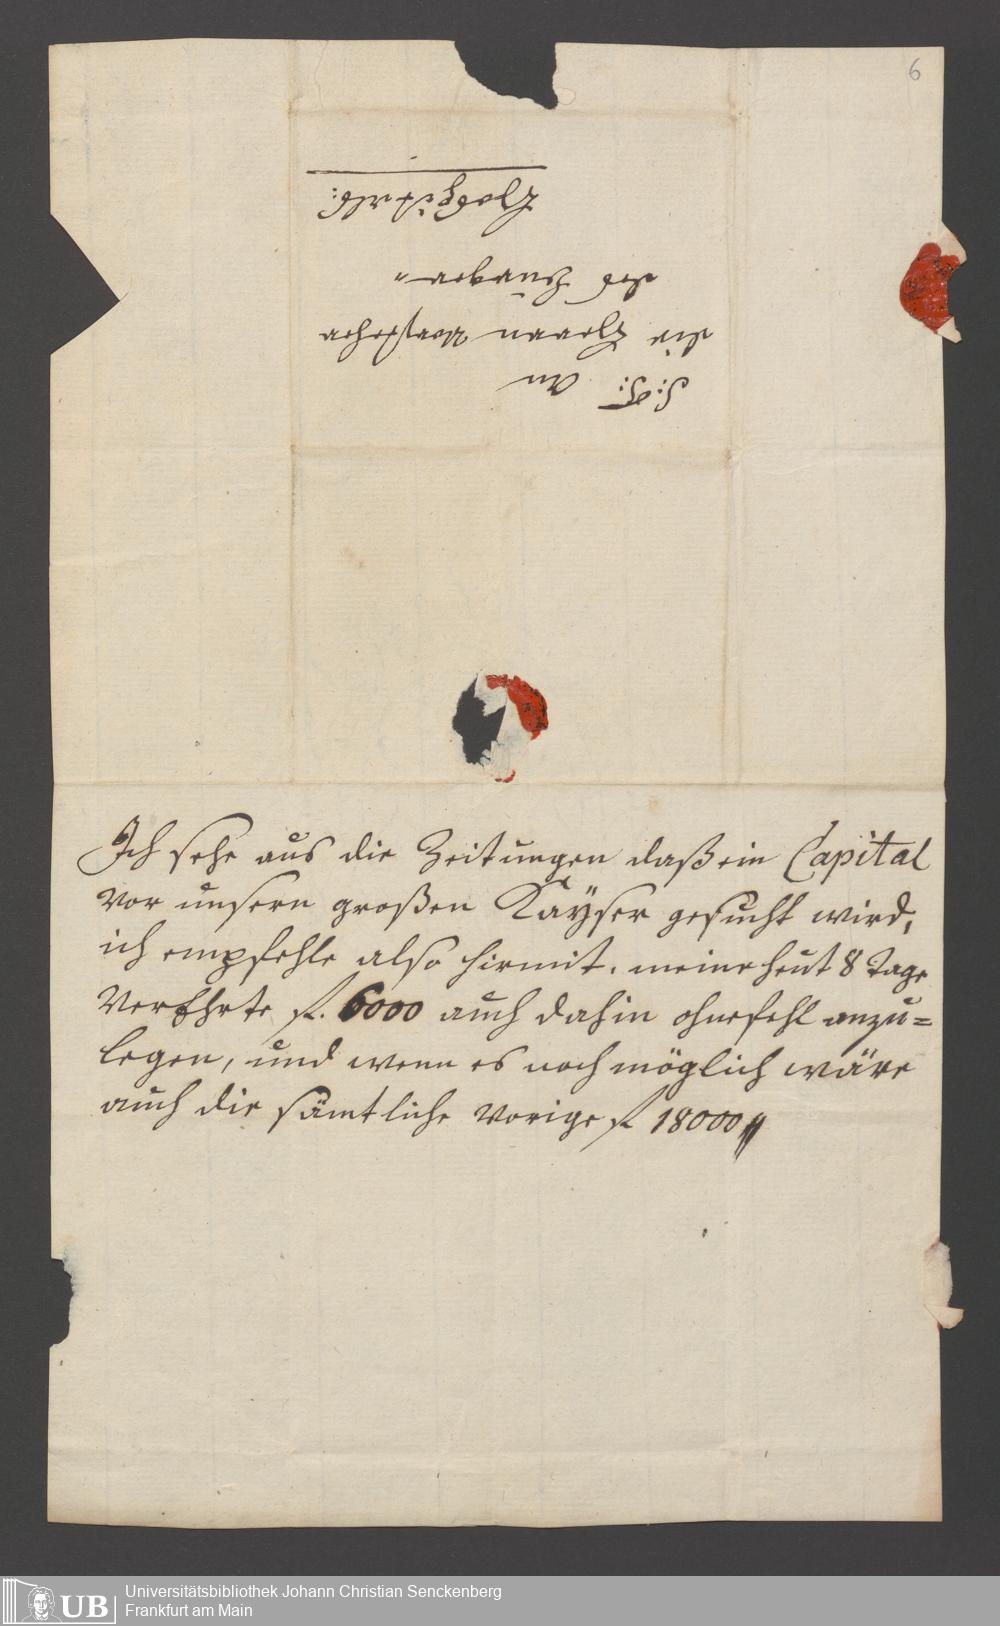 6
P: P: An
die Herrn Vorstehern
des Burger
Hospithals:
Ich sehe aus die Zeitungen daß ein Capital
vor unsern großen Kayser gesucht wird,
ich empfehle also hirmit. meine heut 8 Tage
VerEhrte fl. 6000 auch dahin ohnefehl anzu=
legen, und wenn es noch möglich wäre
auch die sämtliche vorige fl 18000
UB
Universitätsbibliothek Johann Christian Senckenberg
Frankfurt am Main